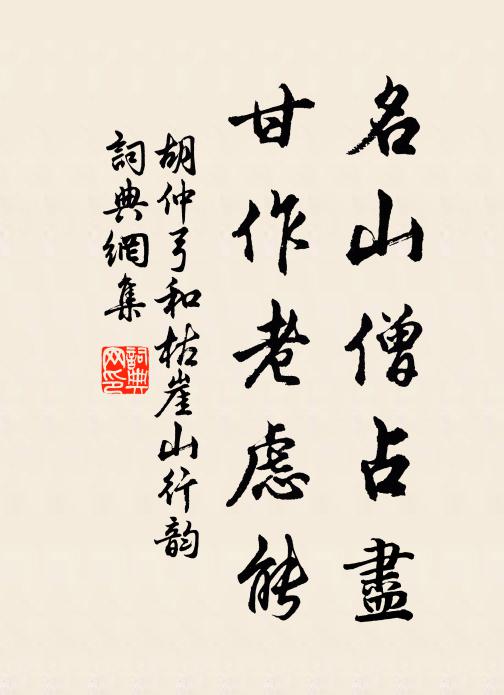 名山僧占盡
甘作老慮能
胡仲弓和枯崖山行韵
詞典網集
詞典网印